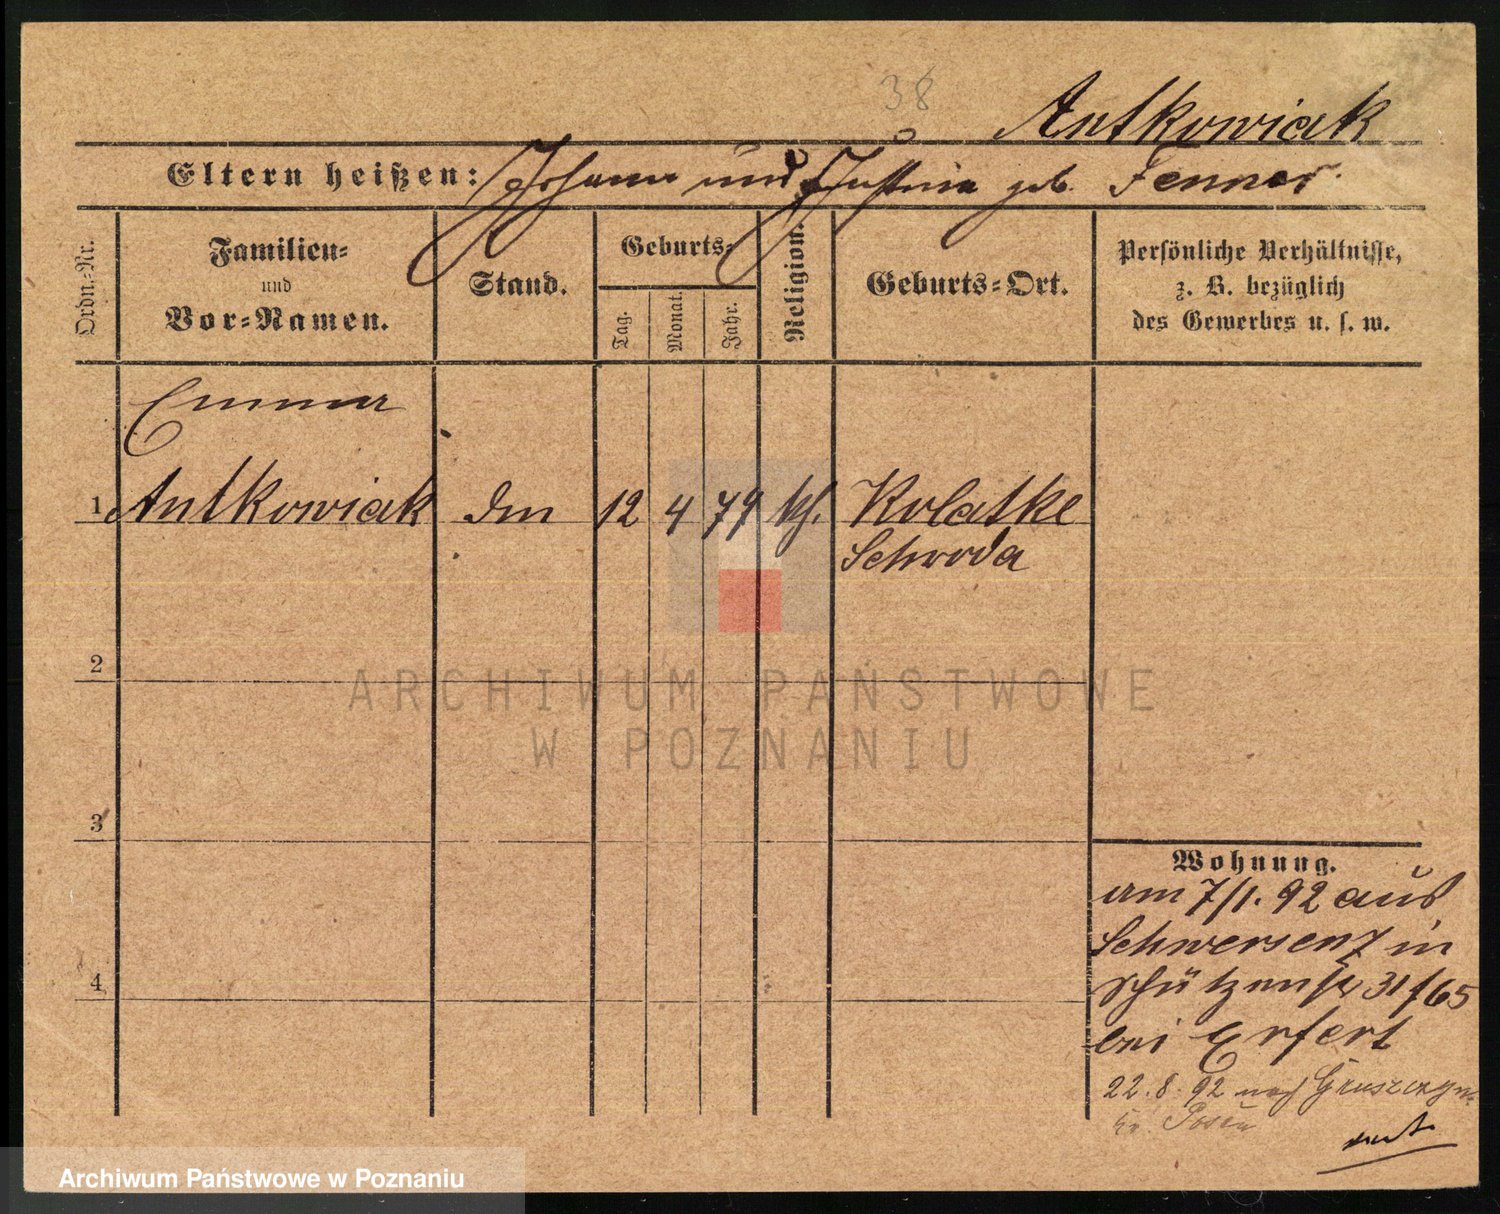 38
Antkowiak
Eltern heißen: Johann und Justina geb. Fenner
Ordn.-Nr.
Familien-
und
Vor-Namen.
Stand.
Geburts-
Tag.
Monat.
Jahr.
Religion.
Geburts-Ort.
Persönliche Verhältnisse,
z. B. bezüglich
des Gewerbes u. s. w.
Emma
1 Antkowiak 12 4 79 kh. Kolatke
Schroda
2
3
4
Wohnung.
am 7/1. 92 aus
Schwersenz in
Schützenstr 31/65
bei Erfert
22.8.92 nach Gruszczyn
Kr. Posen
ARCHIWUM PAŃSTWOWE
W POZNANIU
Archiwum Państwowe w Poznaniu